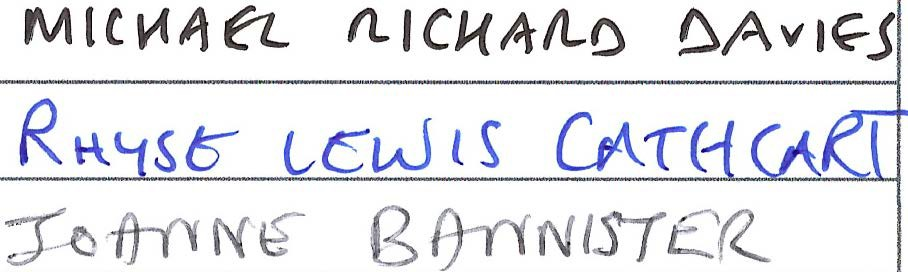 MICHAEL RICHARD DAVIES
RHYSE LEWIS CATHCART
JOANNE BANNISTER